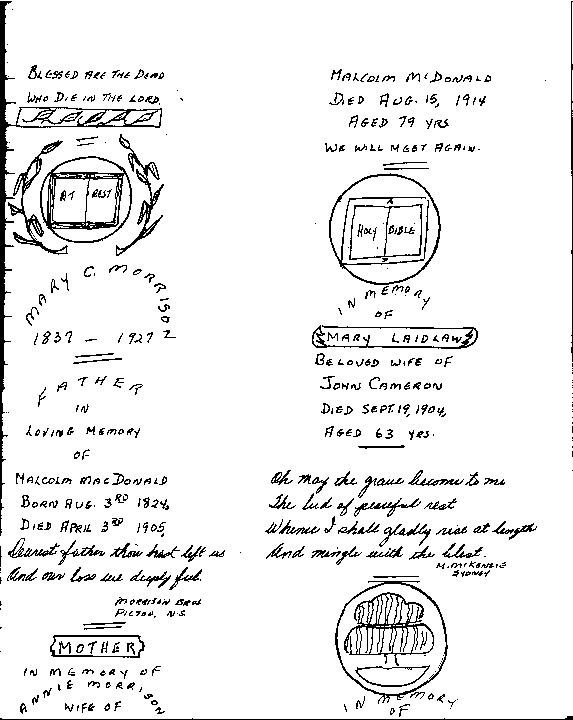 BLESSED ARE THE DEAD
WHO DIE IN THE LORD.
AT REST
MARY C. MORRISON
1837 — 1927
FATHER
IN
LOVING MEMORY
OF
MALCOLM MACDONALD
BORN AUG. 3RD 1824,
DIED APRIL 3RD 1905,
Dearest father thou hast left us
And our loss we deeply feel.
MORRISON BROS
PICTON, N.S.
MOTHER
IN MEMORY OF
ANNIE MORRISON
WIFE OF
MALCOLM McDONALD
DIED AUG. 15, 1914
AGED 79 YRS
WE WILL MEET AGAIN.
HOLY BIBLE
IN MEMORY
OF
MARY LAIDLAW
BELOVED WIFE OF
JOHN CAMERON
DIED SEPT. 19, 1904,
AGED 63 YRS.
Oh may the grave become to me
The bed of peaceful rest
Whence I shall gladly rise at length
And mingle with the blest.
M. McKENZIE
SYDNEY
IN MEMORY
OF